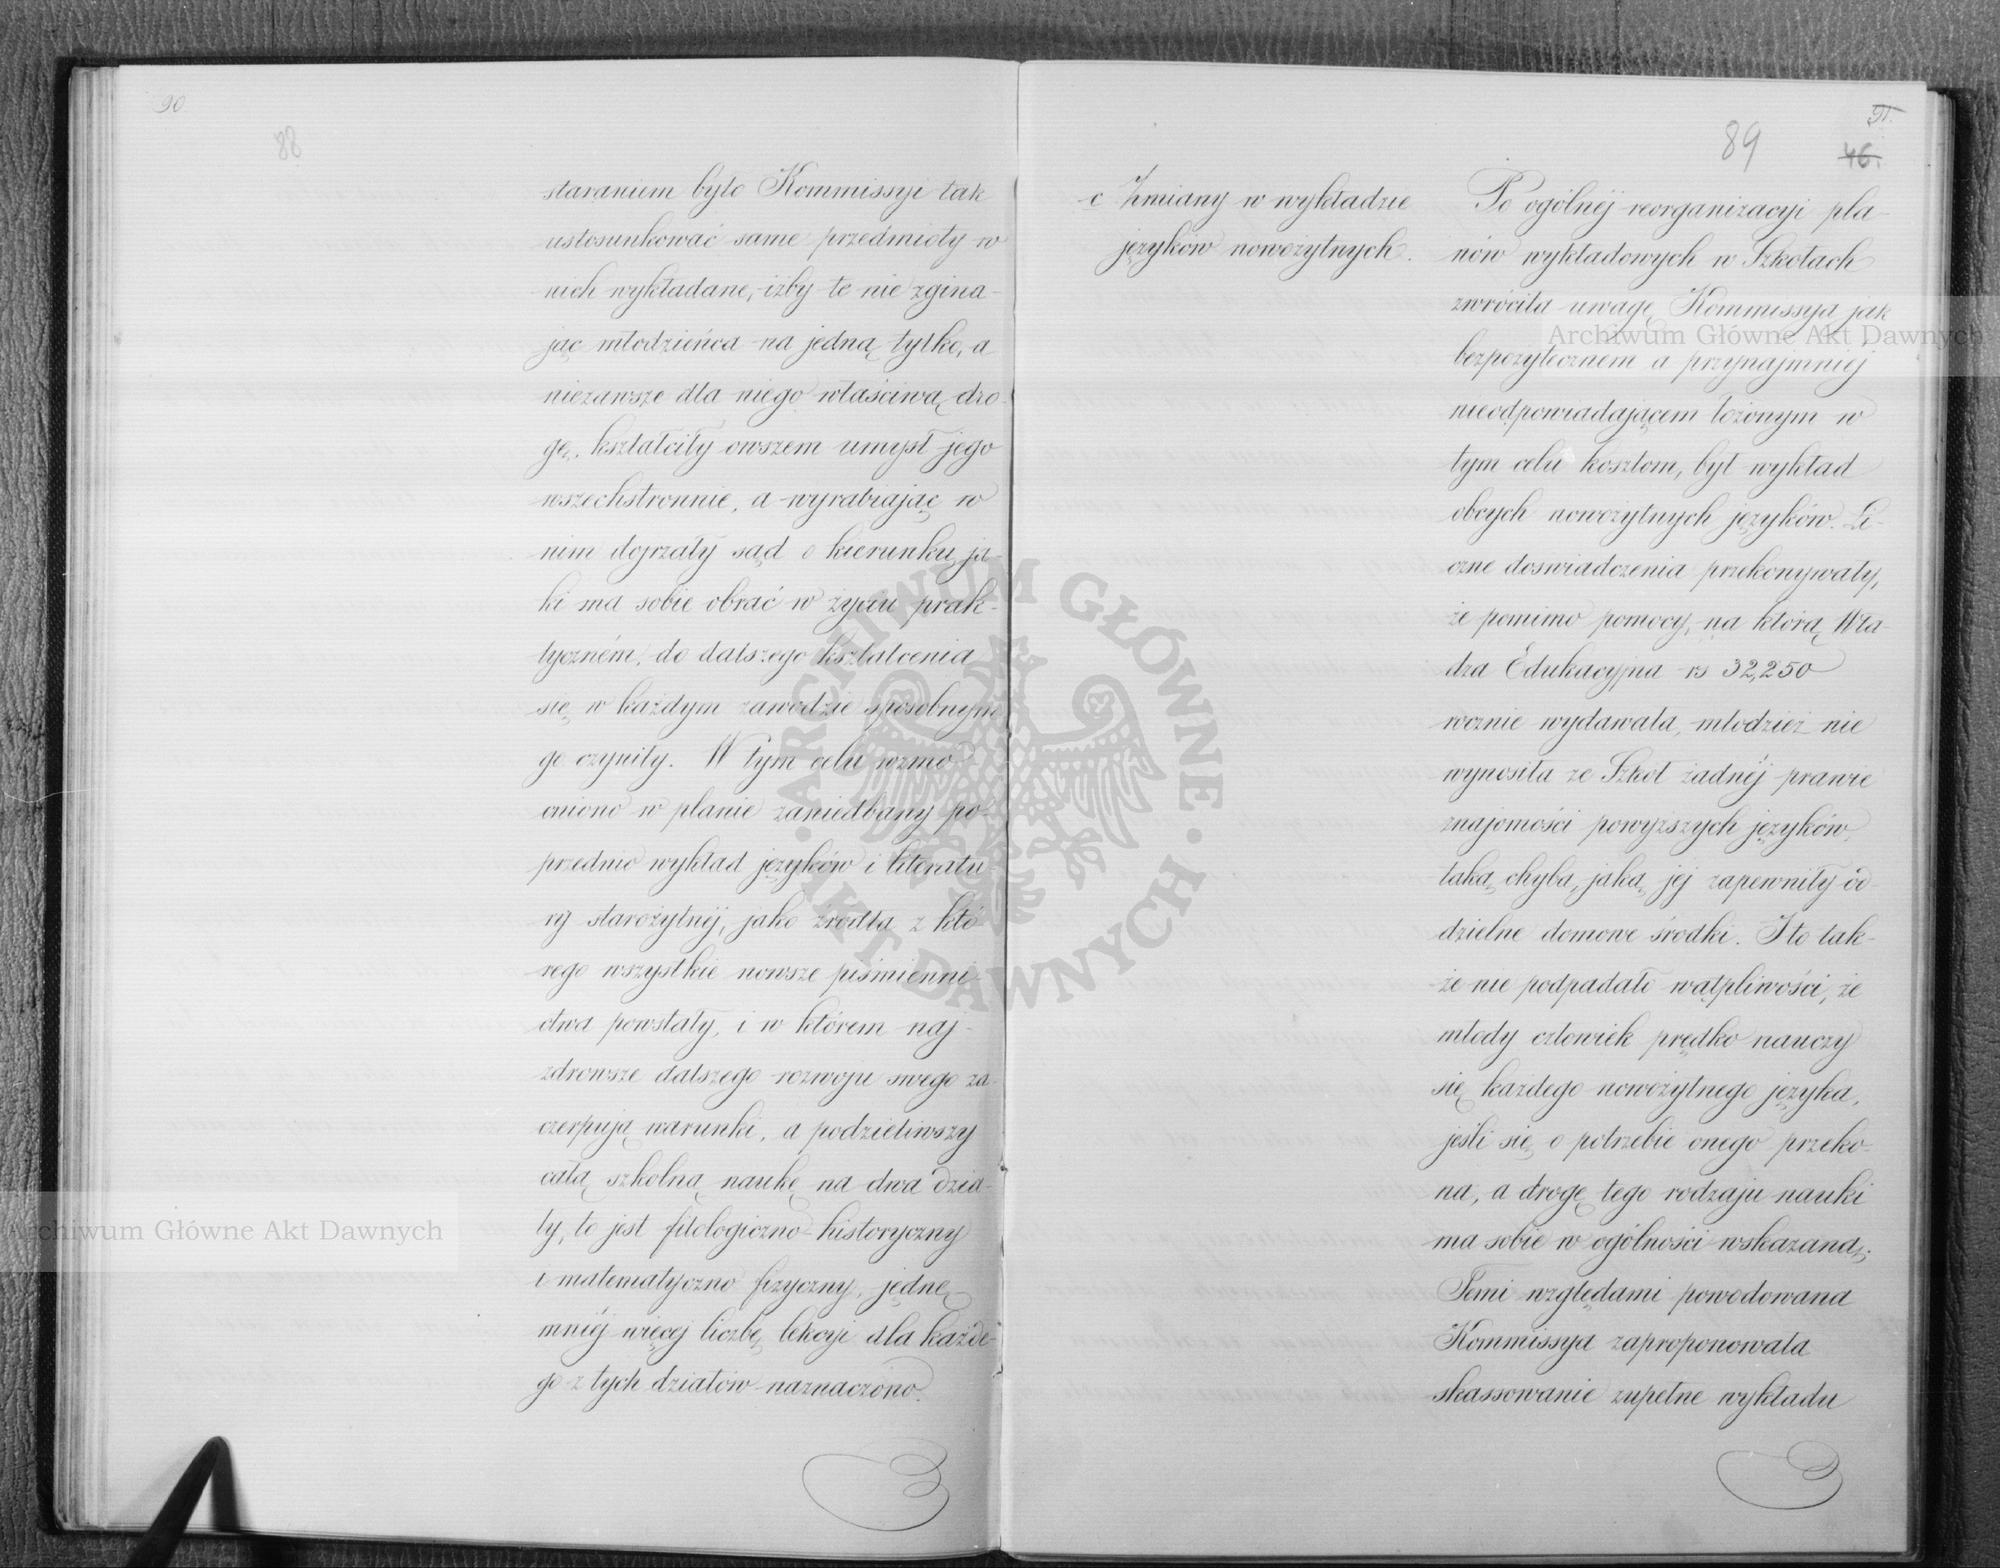 90
88
staraniem było Kommissyi tak
ustosunkować same przedmioty w
nich wykładane, iżby te nie zgina-
jąc młodzieńca na jedną tylko, a
niezawsze dla niego właściwą dro-
gę, kształciły owszem umysł jego
wszechstronnie, a wyrabiając w
nim dojrzały sąd o kierunku ja-
ki ma sobie obrać w życiu prak-
tyczném, do dalszego kształcenia
się w każdym zawodzie sposobnym
go czyniły. W tym celu wzmo-
cniono w planie zaniedbany po-
przednio wykład języków i literatu-
ry starożytnéj, jako źródła z któ-
rego wszystkie nowsze piśmienni-
ctwa powstały, i w którem naj-
zdrowsze dalszego rozwoju swego za-
czerpują warunki, a podzieliwszy
całą szkolną naukę na dwa dzia-
ły, to jest filologiczno-historyczny
i matematyczno fizyczny, jedne
mniéj więcej liczbę lekcyi dla każde-
go z tych działów naznaczono.
91.
89
46.
c Zmiany w wykładzie
języków nowożytnych.
Po ogólnéj reorganizacyi pla-
nów wykładowych w Szkołach
zwróciła uwagę Kommissya jak
bezpożytecznem a przynajmniéj
nieodpowiadającem łożonym w
tym celu kosztom, był wykład
obcych nowożytnych języków. Li-
czne doswiadczenia przekonywały,
że pomimo pomocy, na którą Wła-
dza Edukacyjna rs 32,250
rocznie wydawała, młodzież nie
wynosiła ze Szkoł żadnéj prawie
znajomości powyższych języków,
taką chyba, jaką jej zapewniły od-
dzielne domowe środki. I to tak-
że nie podpadało wątpliwości, że
młody człowiek prędko nauczy
się każdego nowożytnego języka,
jeśli się o potrzebie onego przeko-
na, a drogę tego rodzaju nauki
ma sobie w ogólności wskazaną.
Temi względami powodowana
Kommissya zaproponowała
skassowanie zupełne wykładu
Archiwum Główne Akt Dawnych
Archiwum Główne Akt Dawnych
ARCHIWUM GŁÓWNE AKT DAWNYCH